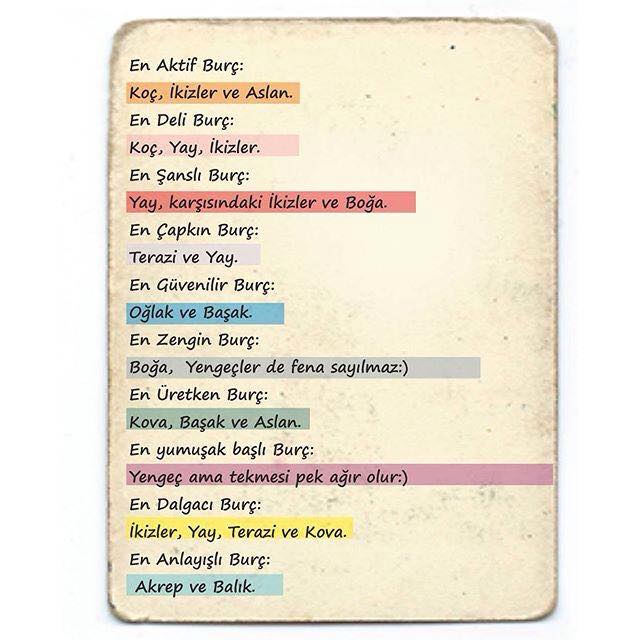 En Aktif Burç:
Koç, İkizler ve Aslan.
En Deli Burç:
Koç, Yay, İkizler.
En Şanslı Burç:
Yay, karşısındaki İkizler ve Boğa.
En Çapkın Burç:
Terazi ve Yay.
En Güvenilir Burç:
Oğlak ve Başak.
En Zengin Burç:
Boğa, Yengeçler de fena sayılmaz:)
En Üretken Burç:
Kova, Başak ve Aslan.
En yumuşak başlı Burç:
Yengeç ama tekmesi pek ağır olur:)
En Dalgacı Burç:
İkizler, Yay, Terazi ve Kova.
En Anlayışlı Burç:
Akrep ve Balık.